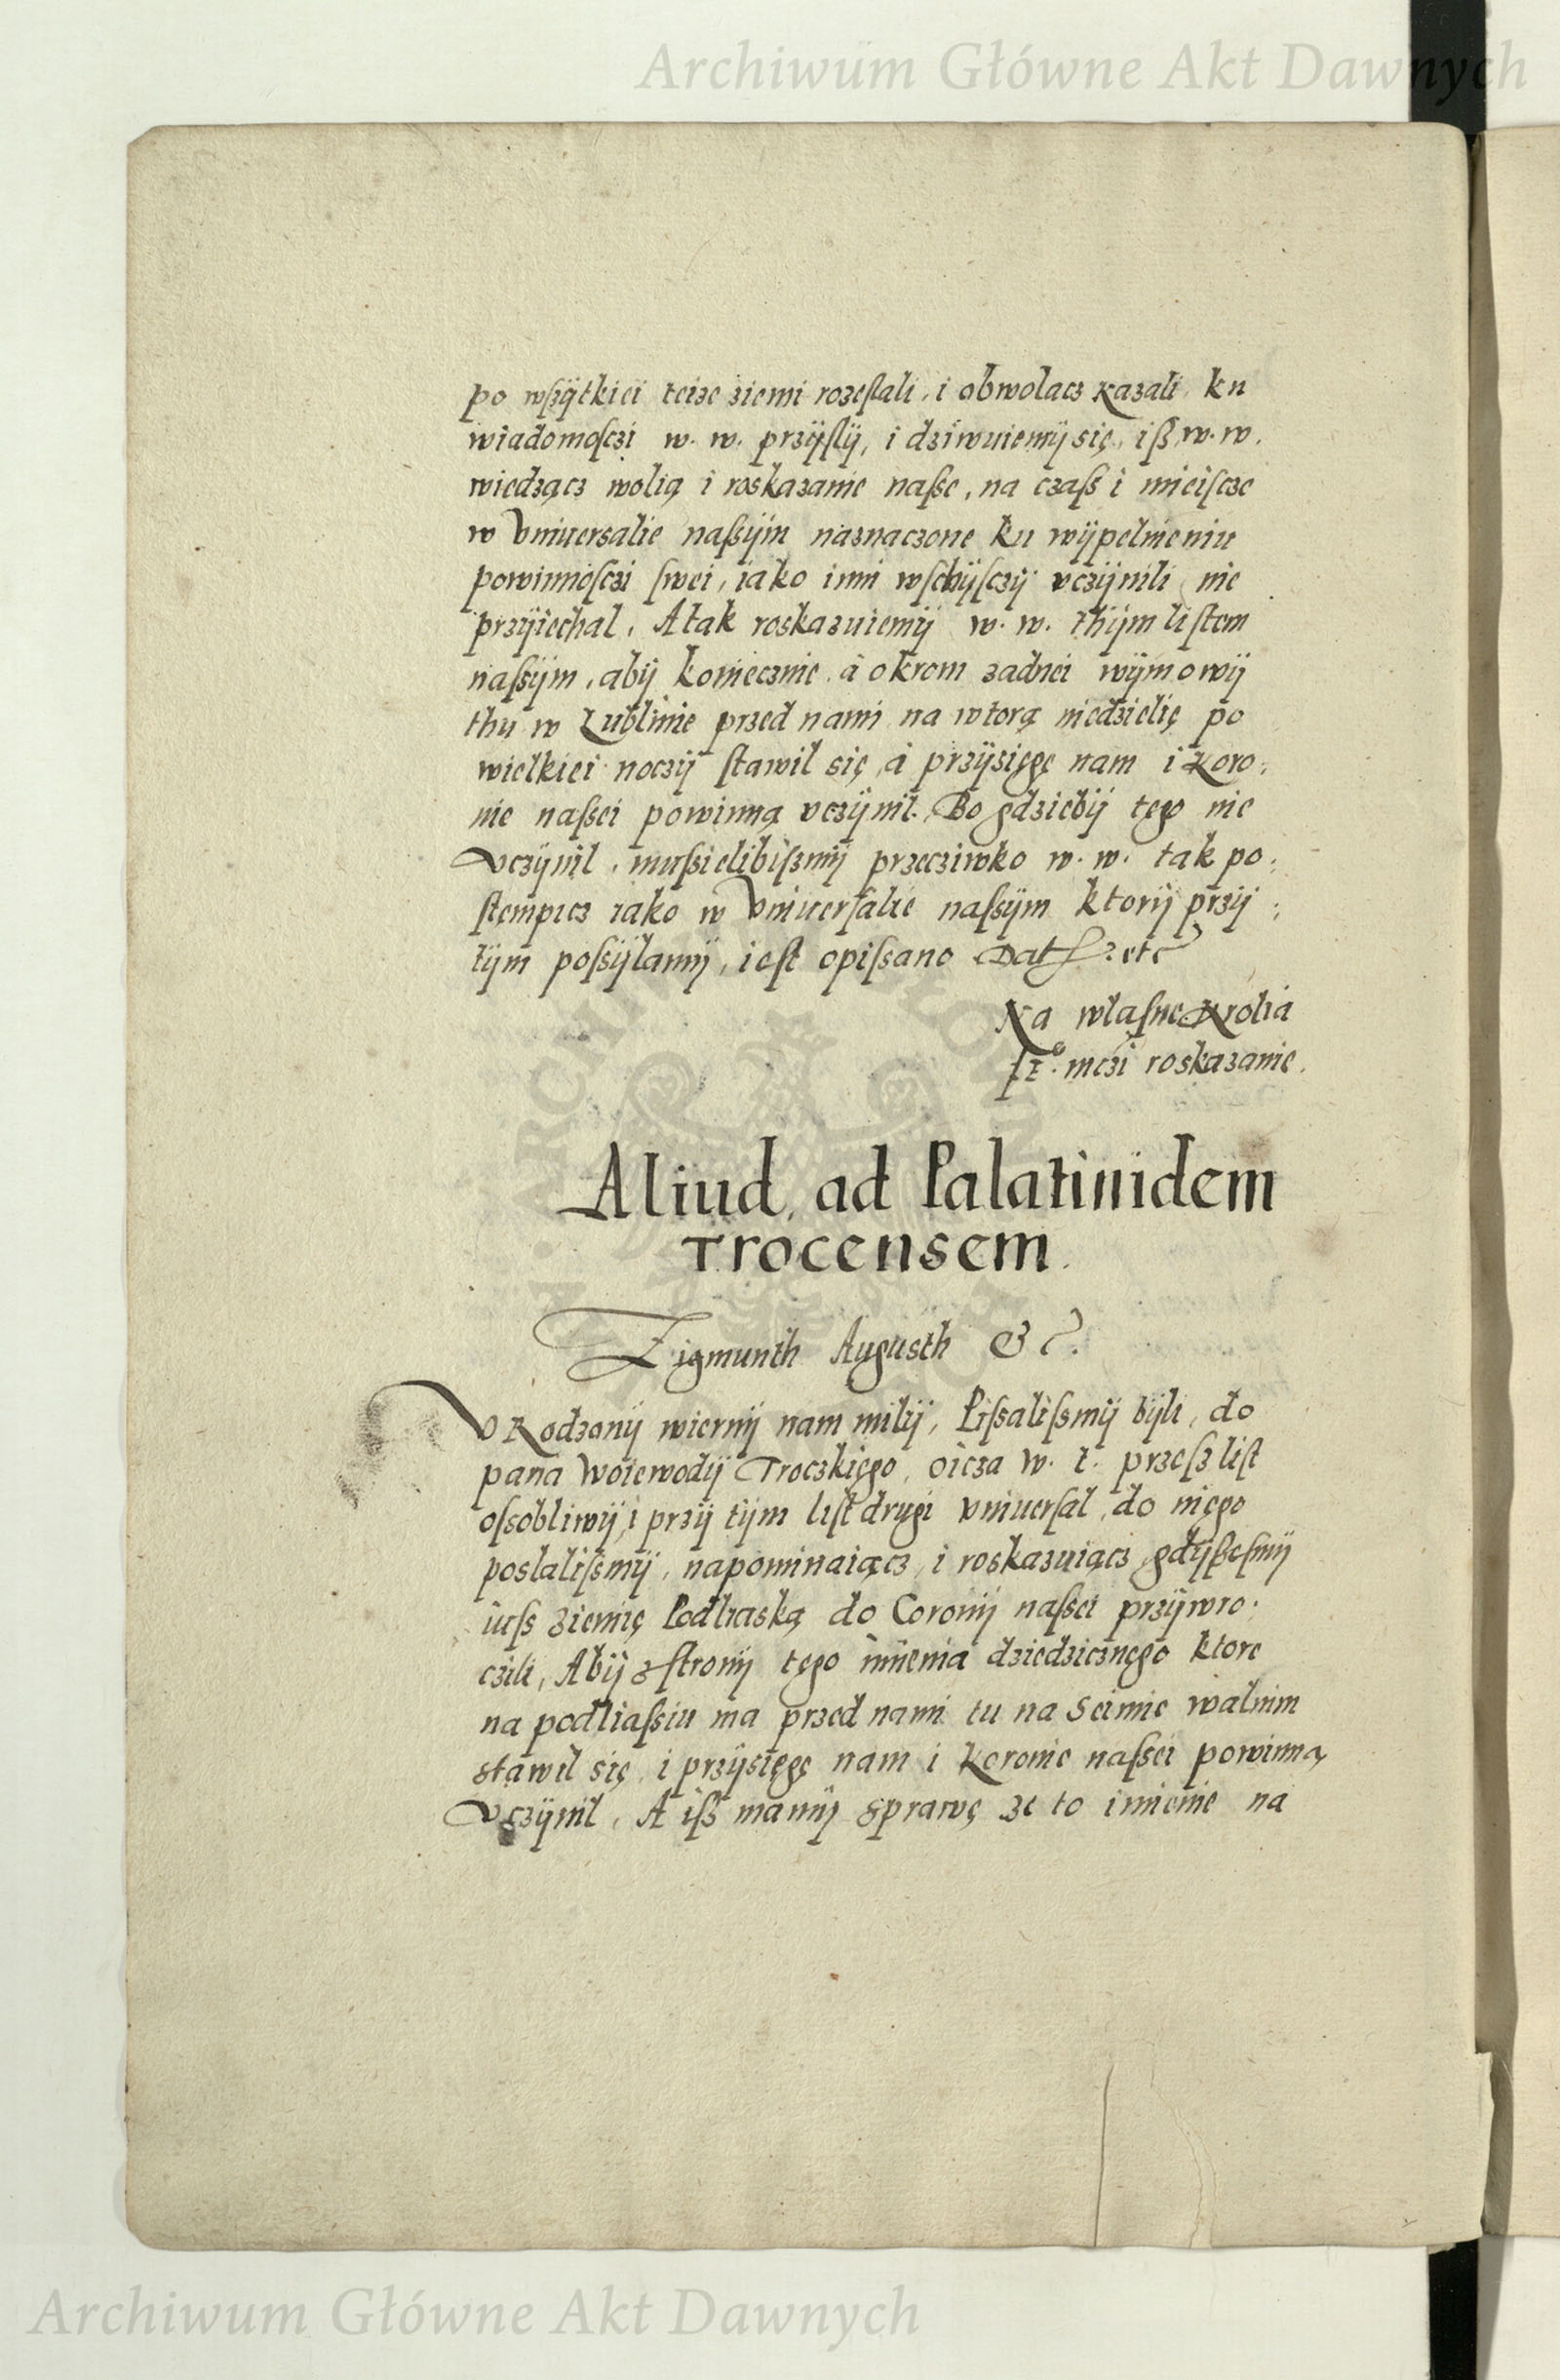 Archiwum Główne Akt Dawnych
po wszÿtkiei teize ziemi rozeslali, i obwolacz kazali, ku
wiadomosczi w. w. przÿslÿ, i dziwuiemÿ się, isz w. w.
wiedzącz wolią i roskazanie nasse, na czass i mieiscze
w Vniuersalie nassÿm naznaczone ku wÿpelnieniu
powinnosczi swei, iako inni wschÿsczÿ vczÿnili nie
przÿiechal. A tak roskazuiemÿ w. w. thÿm listem
nassÿm, abÿ koniecznie à okrom zadnei wÿmowÿ
thu w Lublinie przed nami na wtorą niedzielię po
wielkiei noczÿ stawil się, à przÿsięgę nam i Koro:
nie nassei powinną vczÿnil. Bo gdziebÿ tęgo nie
vczÿnil, mussielibiszmÿ przecziwko w. w. tak po:
stempicz iako w Vniuersalie nassÿm ktorÿ przÿ:
tÿm possÿlamÿ, iest opissano Dat etc
Na wlasne Krolia
Je° mczi roskazanie.
Aliud ad Palatinidem
Trocensem.
Zigmunth Augusth &c.
VRodzonÿ wiernÿ nam milÿ, Pissalismÿ bÿli, do
pana Woiewodÿ Troczkięgo, oicza w. t. przesz list
ossobliwÿ, i przÿ tÿm list drugi vniuersal, do nięgo
poslalismÿ, napominaiącz, i roskazuiącz, gdÿszesmÿ
iuss ziemię Podliaską do Coronÿ nassei przÿwro:
czili, Abÿ z stronÿ tęgo imienia dziedzicznęgo ktore
na podliassiu ma przed nami tu na Seimie walnim
stawil się, i przÿsięgę nam i Koronie nassei powinną
vczÿnil, A isz mamÿ sprawę ze to imienie na
Archiwum Główne Akt Dawnych